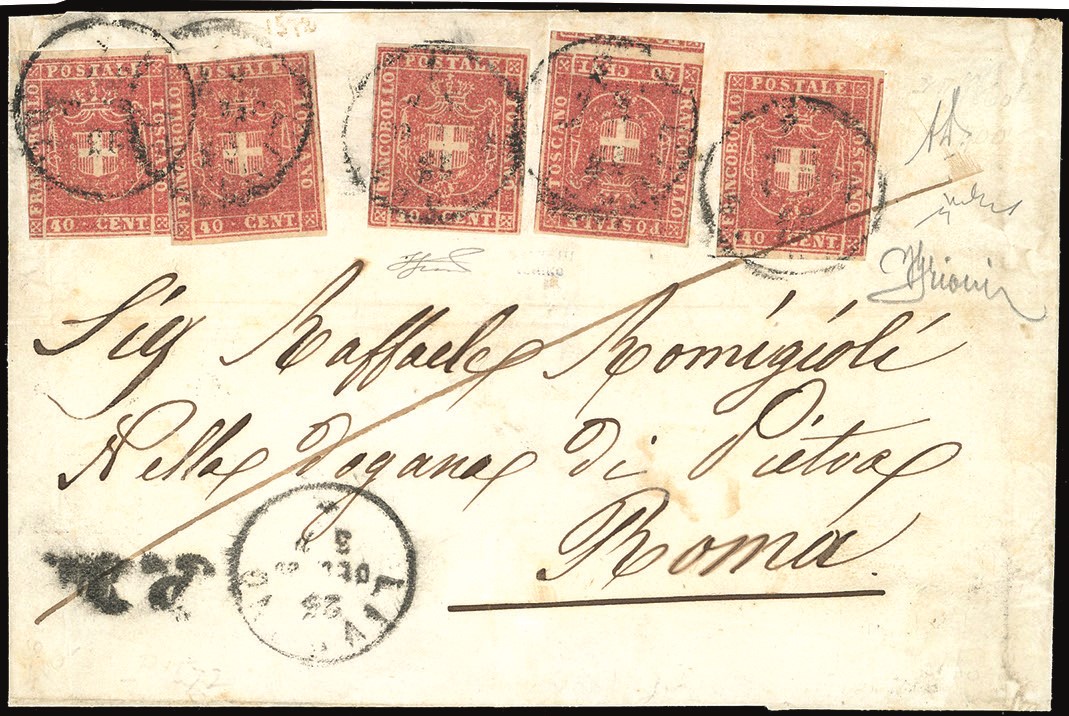 POSTALE
FRANCOBOLLO
TOSCANO
40 CENT
POSTALE
FRANCOBOLLO
TOSCANO
40 CENT
POSTALE
FRANCOBOLLO
TOSCANO
40 CENT
POSTALE
FRANCOBOLLO
TOSCANO
40 CENT
POSTALE
FRANCOBOLLO
TOSCANO
40 CENT
Sig Raffaele Romigioli
Nella Dogana di Pietra
Roma.
P.D.
DEC